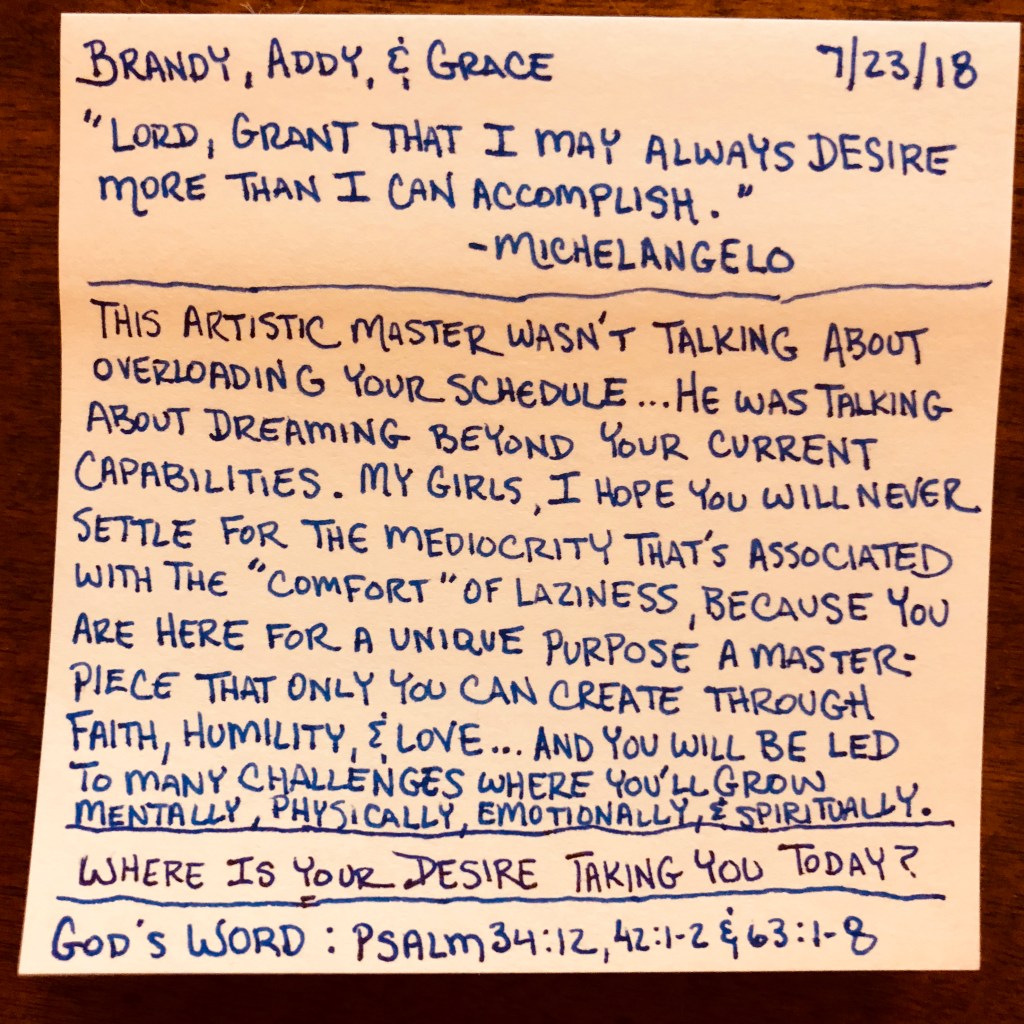 BRANDY, ADDY, & GRACE 7/23/18
"LORD, GRANT THAT I MAY ALWAYS DESIRE
MORE THAN I CAN ACCOMPLISH."
-MICHELANGELO
THIS ARTISTIC MASTER WASN'T TALKING ABOUT
OVERLOADING YOUR SCHEDULE...HE WAS TALKING
ABOUT DREAMING BEYOND YOUR CURRENT
CAPABILITIES. MY GIRLS, I HOPE YOU WILL NEVER
SETTLE FOR THE MEDIOCRITY THAT'S ASSOCIATED
WITH THE "COMFORT" OF LAZINESS, BECAUSE YOU
ARE HERE FOR A UNIQUE PURPOSE A MASTER-
PIECE THAT ONLY YOU CAN CREATE THROUGH
FAITH, HUMILITY, & LOVE... AND YOU WILL BE LED
TO MANY CHALLENGES WHERE YOU'LL GROW
MENTALLY, PHYSICALLY, EMOTIONALLY, & SPIRITUALLY.
WHERE IS YOUR DESIRE TAKING YOU TODAY?
GOD'S WORD: PSALM 34:12, 42:1-2 & 63:1-8